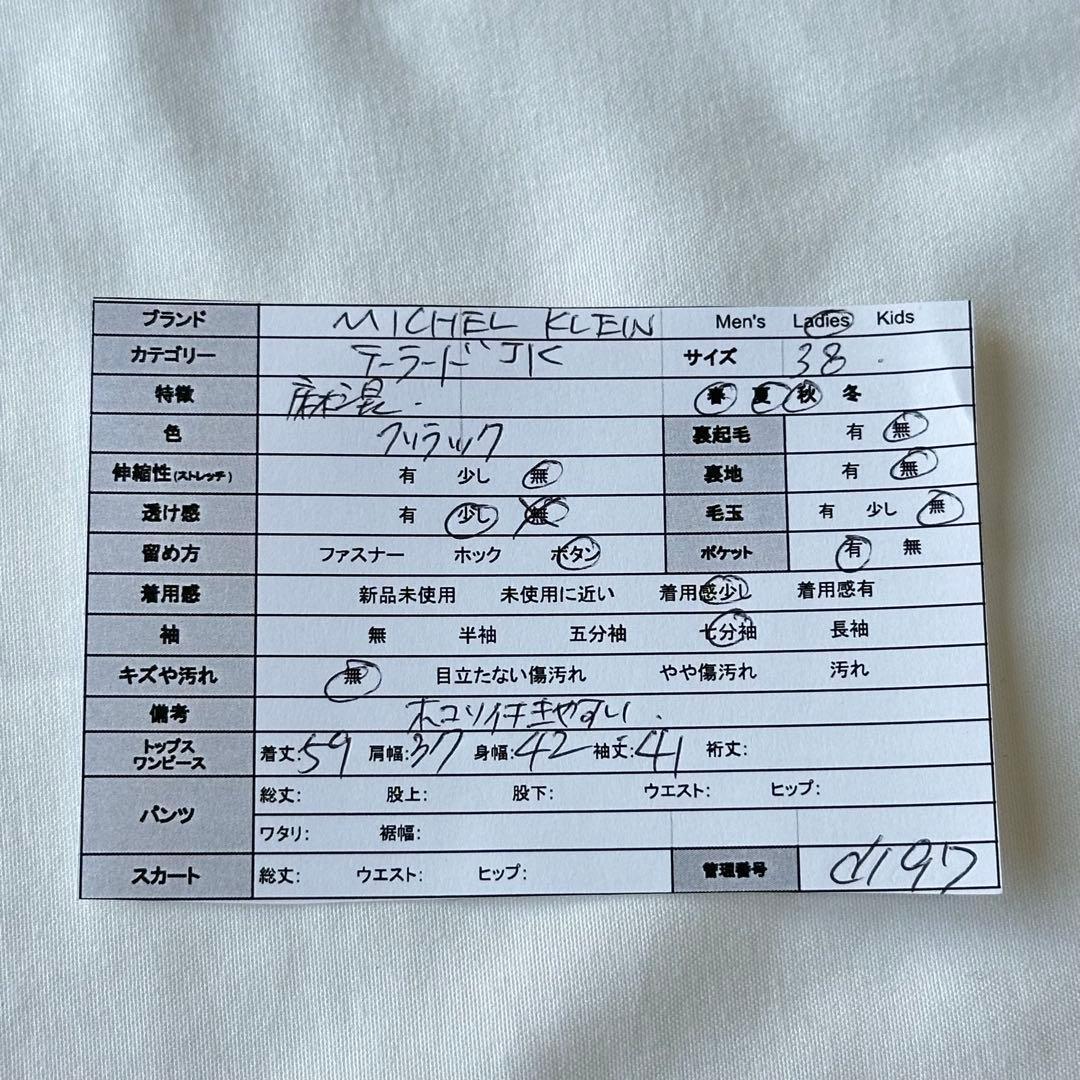 ブランド MICHEL KLEIN Men's Ladies Kids
カテゴリー テーラードJK サイズ 38
特徴 麻混 春 夏 秋 冬
色 ブラック 裏起毛 有 無
伸縮性(ストレッチ) 有 少し 無 裏地 有 無
透け感 有 少し 無 毛玉 有 少し 無
留め方 ファスナー ホック ボタン ポケット 有 無
着用感 新品未使用 未使用に近い 着用感少し 着用感有
袖 無 半袖 五分袖 七分袖 長袖
キズや汚れ 無 目立たない傷汚れ やや傷汚れ 汚れ
備考 ホコリ付きやすい.
トップス ワンピース 着丈:59 肩幅:37 身幅:42 袖丈:41 裄丈:
パンツ 総丈: 股上: 股下: ウエスト: ヒップ:
ワタリ: 裾幅:
スカート 総丈: ウエスト: ヒップ: 管理番号 d197